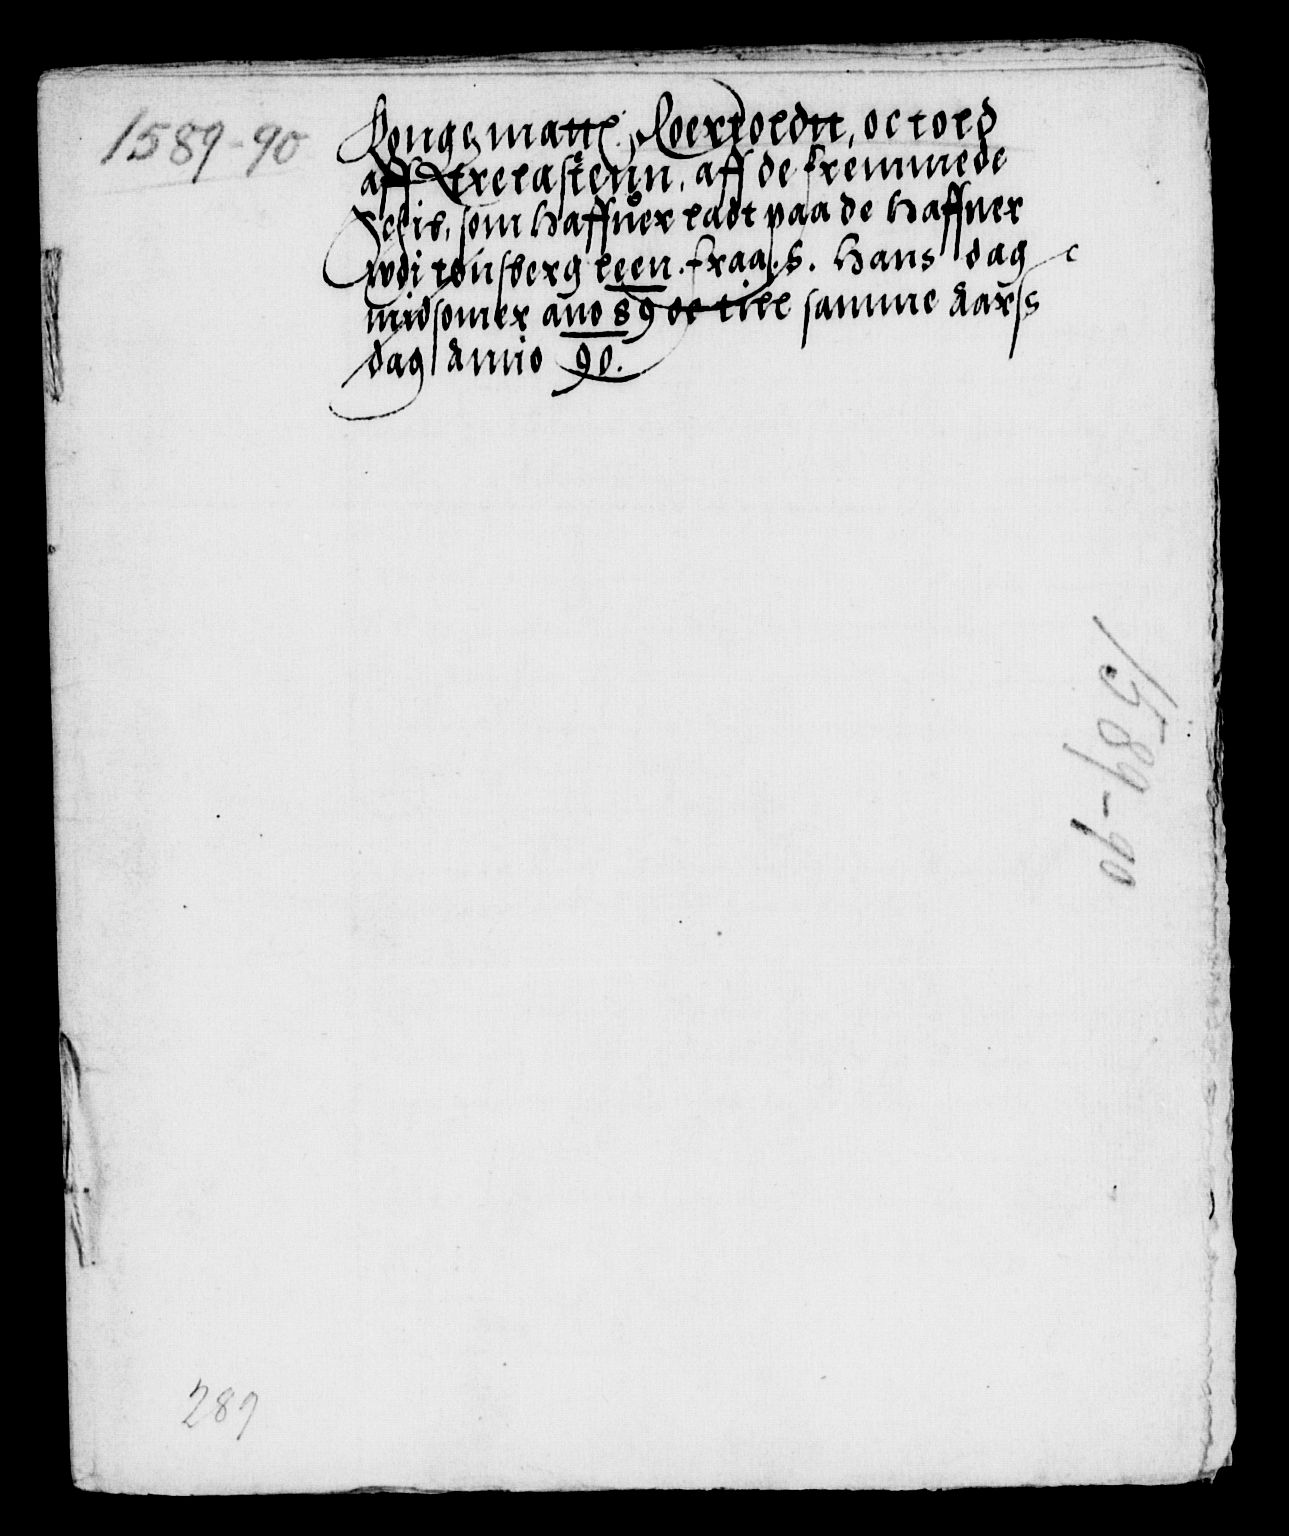 1589-90
Kong: matt: Roertoldtt, oc told
aff Trelastenn, aff de fremmede
Schib, som haffuer ladt paa de haffner
wdi tønsberg leen. fraa. S. Hans dag
midsomer ano 89 oc till samme aarss
dag Anno 90.
1589-90
289